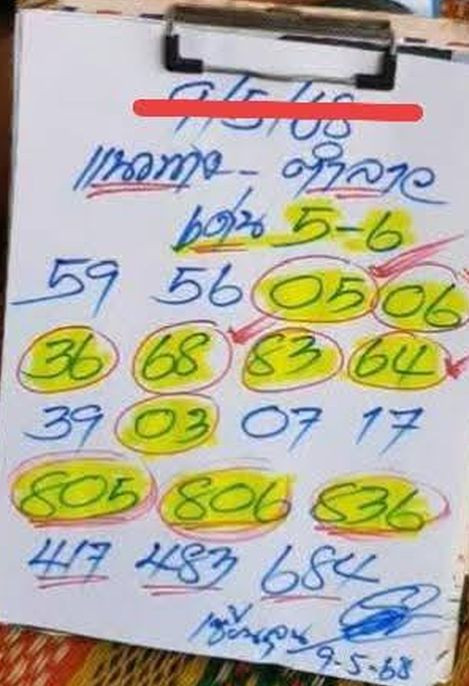 9/5/68
แนวทาง - คำลาว
เด่น 5-6
59 56 05 06
36 68 83 64
39 03 07 17
805 806 836
417 483 684
9-5-68